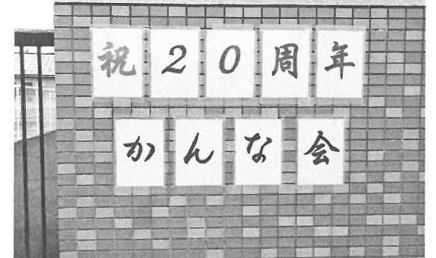 祝20周年
かんな会